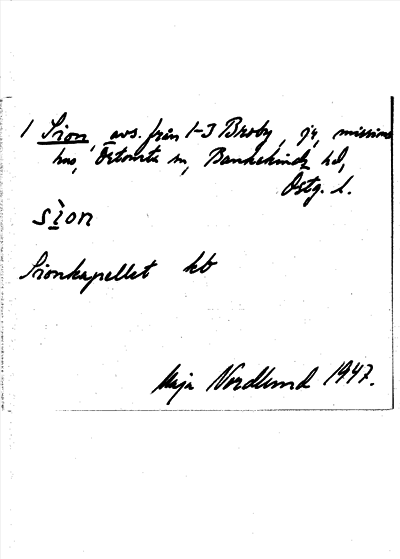 1 Sion, avs. från 1-3 Broby, jr, missions
hus, Östomta sn, Bankekinds hd,
Östg. l.
sìon
Sionkapellet kb
Maja Nordlund 1947.